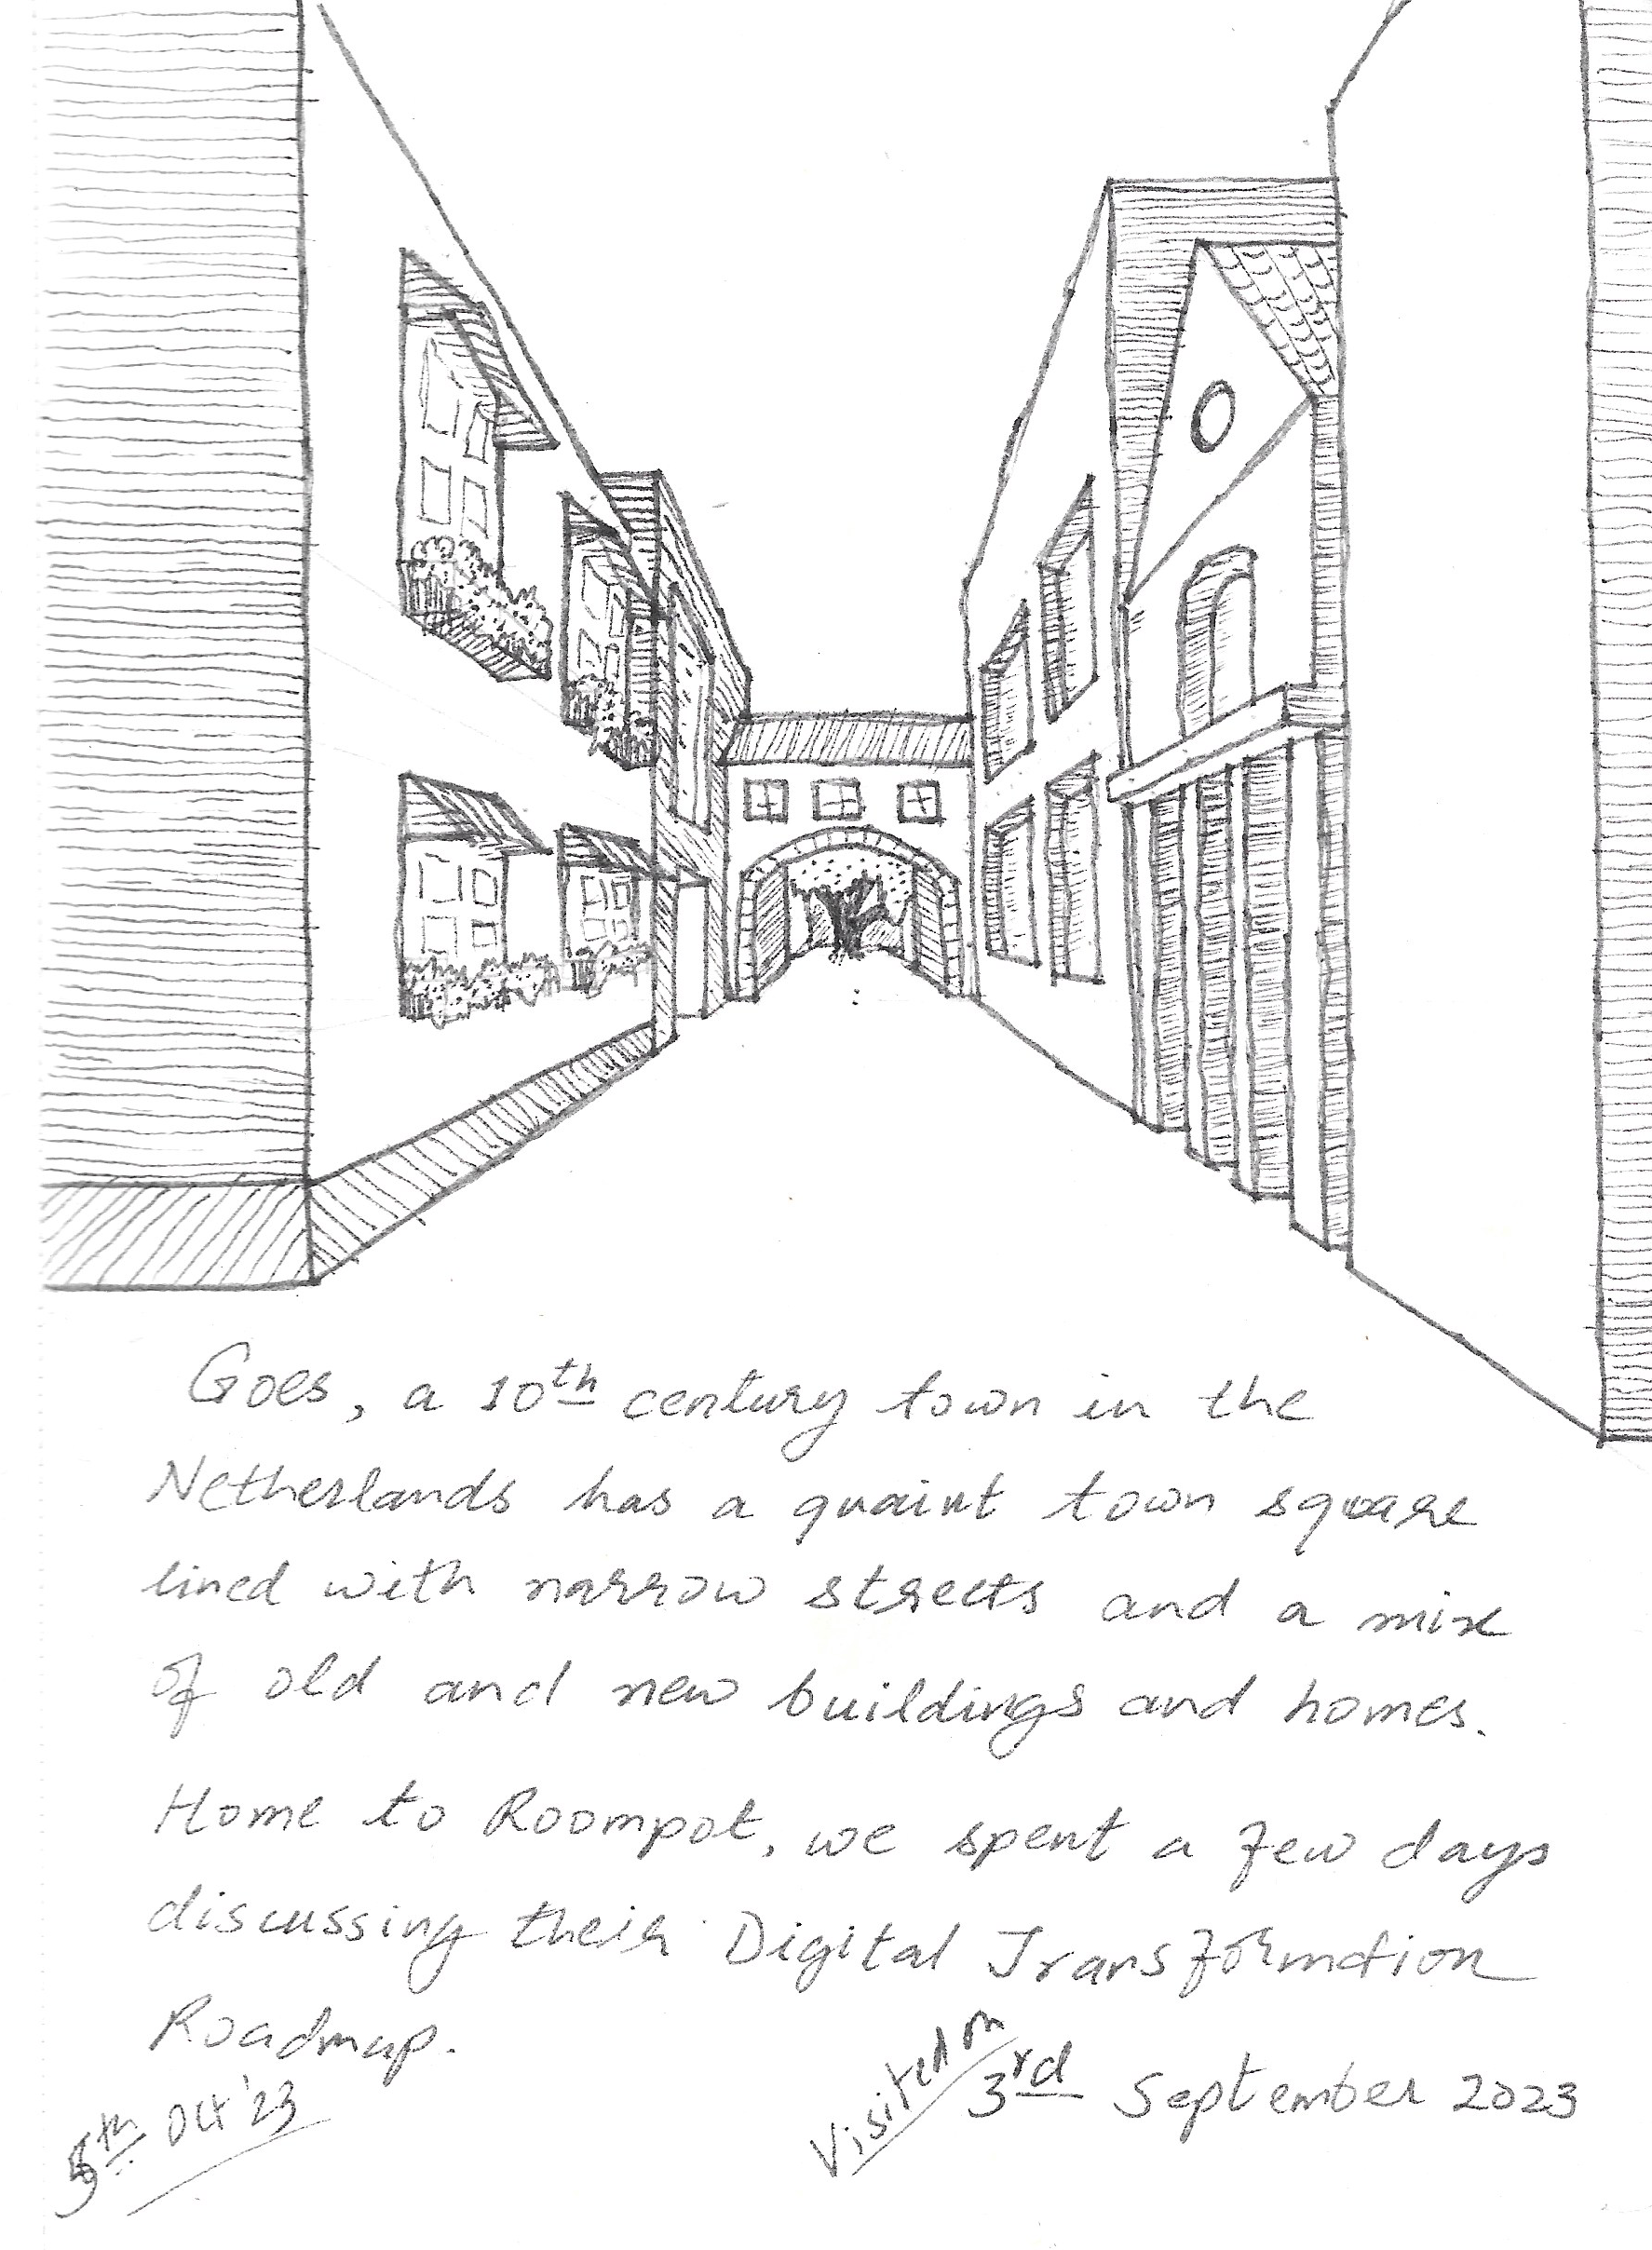 Goes, a 10th century town in the
Netherlands has a quaint town square
lined with narrow streets and a mix
of old and new buildings and homes.
Home to Roompot, we spent a few days
discussing their Digital Transformation
Roadmap.
Visited on
3rd September 2023
5th Oct '23